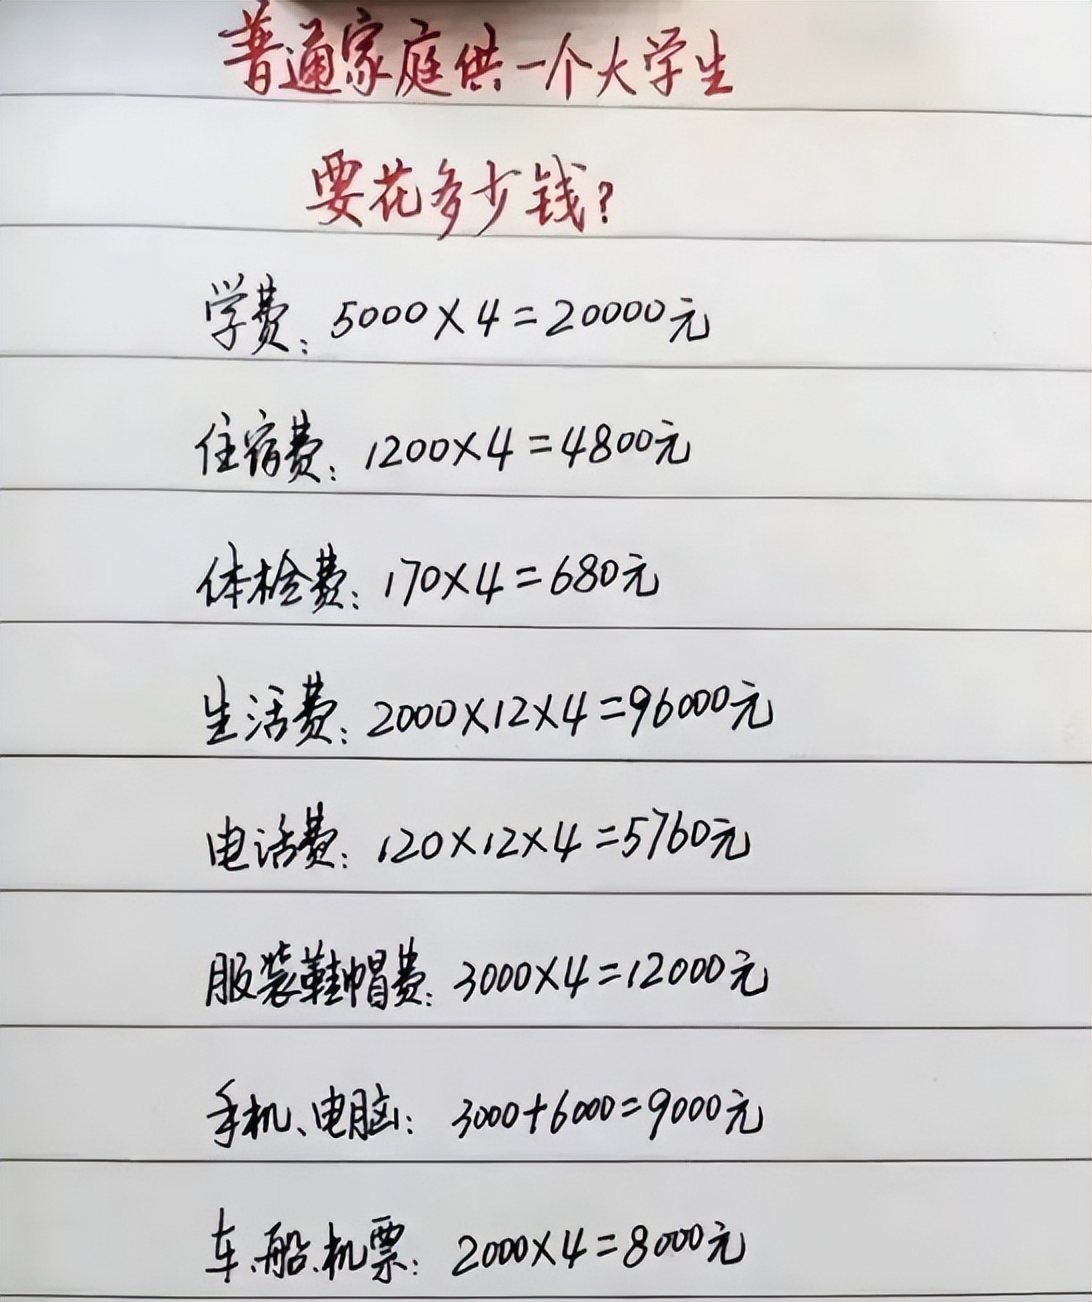 普通家庭供一个大学生
要花多少钱?
学费: 5000×4=20000元
住宿费: 1200×4=4800元
体检费: 170×4=680元
生活费: 2000×12×4=96000元
电话费: 120×12×4=5760元
服装鞋帽费: 3000×4=12000元
手机、电脑: 3000+6000=9000元
车、船、机票: 2000×4=8000元